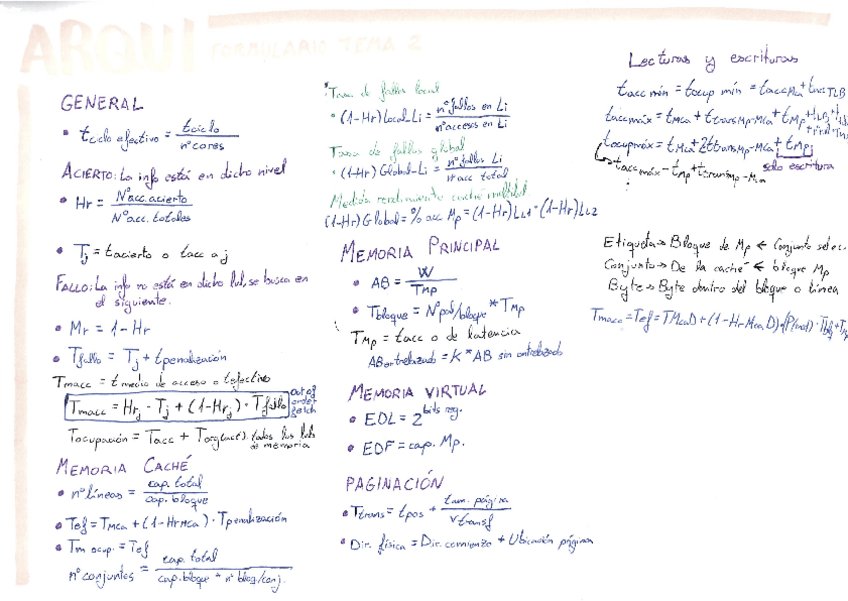 ARQUI FORMULARIO TEMA 2
GENERAL
• tciclo efectivo = tciclo / nºcores
ACIERTO: La info está en dicho nivel
• Hr = Nºacc.acierto / Nºacc. totales
• Tj = tacierto o tacc a j
FALLO: La info no está en dicho lvl, se busca en
el siguiente.
• Mr = 1 - Hr
• Tfallo = Tj + tpenalización
Tmacc = t medio de acceso o tefectivo
Tmacc = Hrj · Tj + (1-Hrj) · Tfallo
out of
order
fetch
Tocupación = Tacc + Torg(act). todos los lvls
de memoria
MEMORIA CACHÉ
• nºlíneas = cap. total / cap. bloque
• Tef = TMca + (1-HrMca) · Tpenalización
• Tm ocup. = Tef
nºconjuntos = cap. total / cap. bloque * nº bloq/conj.
Tasa de fallos local
• (1-Hr)Local-Li = nºfallos en Li / nºaccesos en Li
Tasa de fallos global
• (1-Hr)Global-Li = nºfallos Li / nºacc total
Medida rendimiento caché multinivel
(1-Hr)Global = % acc Mp = (1-Hr)LL1 * (1-Hr)LL2
MEMORIA PRINCIPAL
• AB = W / TMp
• Tbloque = Nºpal/bloque * TMp
TMp = tacc o de latencia
ABentrelazado = K * AB sin entrelazado
MEMORIA VIRTUAL
• EDL = 2^bits reg.
• EDF = cap. Mp.
PAGINACIÓN
• Ttrans = tpos + tam. página / vtransf
• Dir. física = Dir. comienzo + Ubicación página
Lectura y escrituras
taccmín = tocup mín = taccMca + taccTLB
taccmáx = tMca + ttransMp-Mca + tMp
tocupmáx = tMca + 2ttransMp-Mca + tMp
solo escritura
taccmáx - tMp + ttransMp-Mca
Etiqueta → Bloque de Mp ← Conjunto selec.
Conjunto → De la caché ← bloque Mp
Byte → Byte dentro del bloque o línea
Tmacc = Tef = TMcaD + (1-HrMcaD)